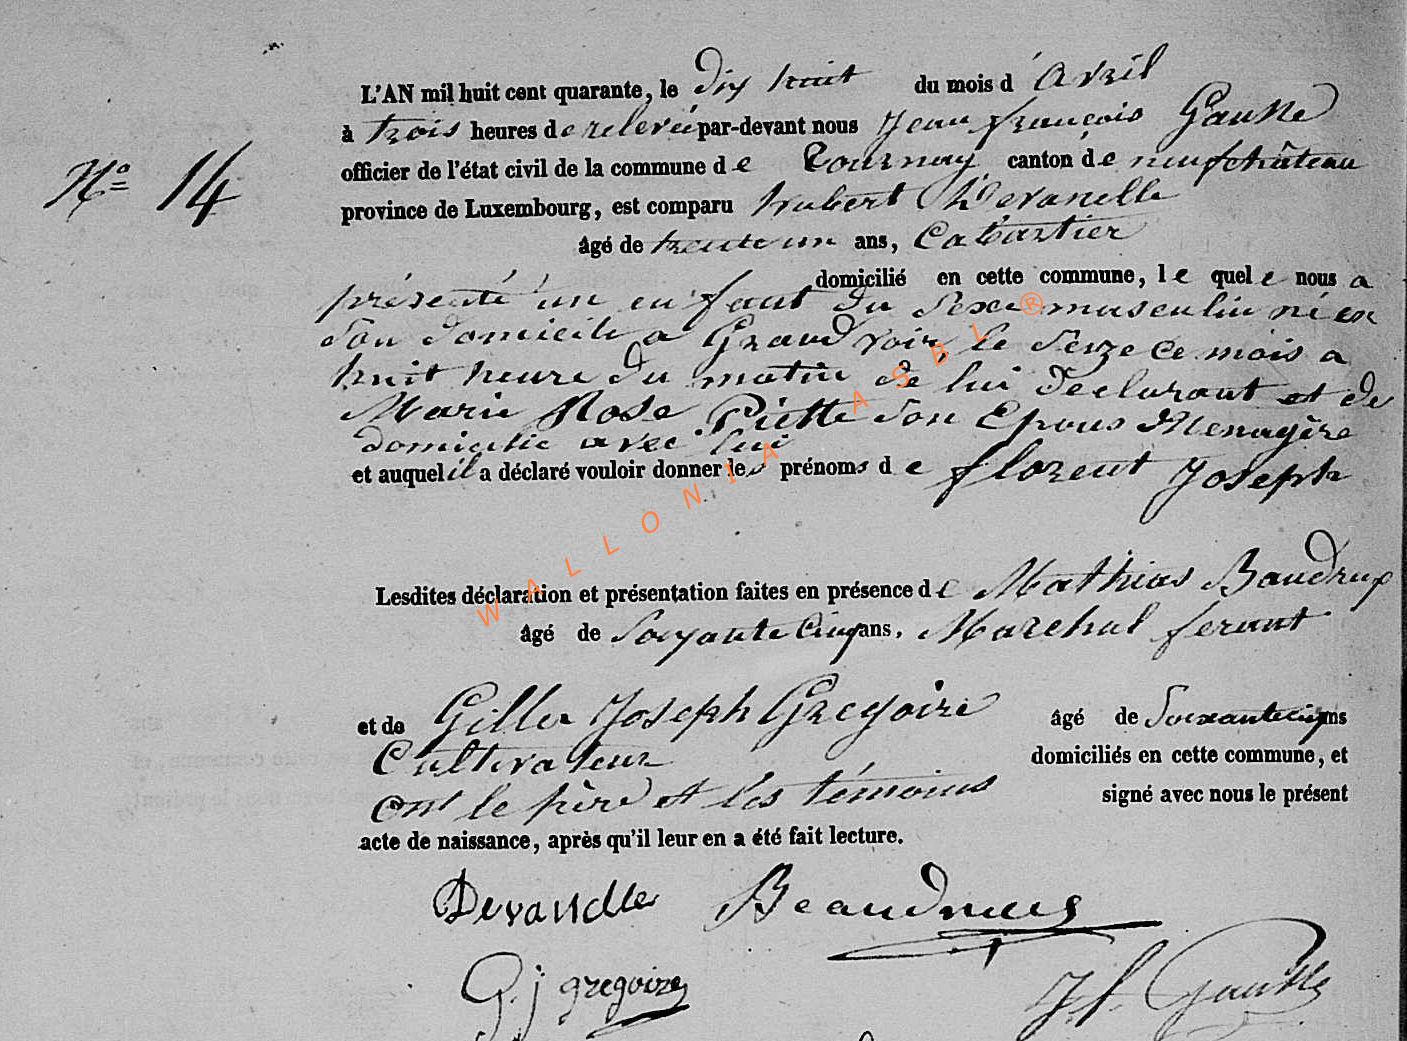 L'AN mil huit cent quarante, le dix huit du mois d'avril
à trois heures de relevée par-devant nous Jean françois
officier de l'état civil de la commune de Tournay canton de neufchâteau
N° 14
province de Luxembourg, est comparu hubert Devanelle
âgé de trente un ans, Cabartier
domicilié en cette commune, le quel e nous a
présenté un enfant du Sexe masculin né en
Son domicile a Grandvoir, le Seize ce mois a
huit heure du matin de lui Declarant et de
Marie Rose Piette Son Epous Menagère
domicilie avec lui
et auquel il a déclaré vouloir donner les prénoms de florent Joseph
Lesdites déclaration et présentation faites en présence de Mathias Baudrux
âgé de Soixante Cinq ans, Marehal ferant
et de Gille Joseph Gregoire âgé de Soixante cinq ans
Cultivateur domiciliés en cette commune, et
ont le père et les témoins signé avec nous le présent
acte de naissance, après qu'il leur en a été fait lecture.
Devanelle
G. j gregoire J f.
WALLONIA ASBL ®